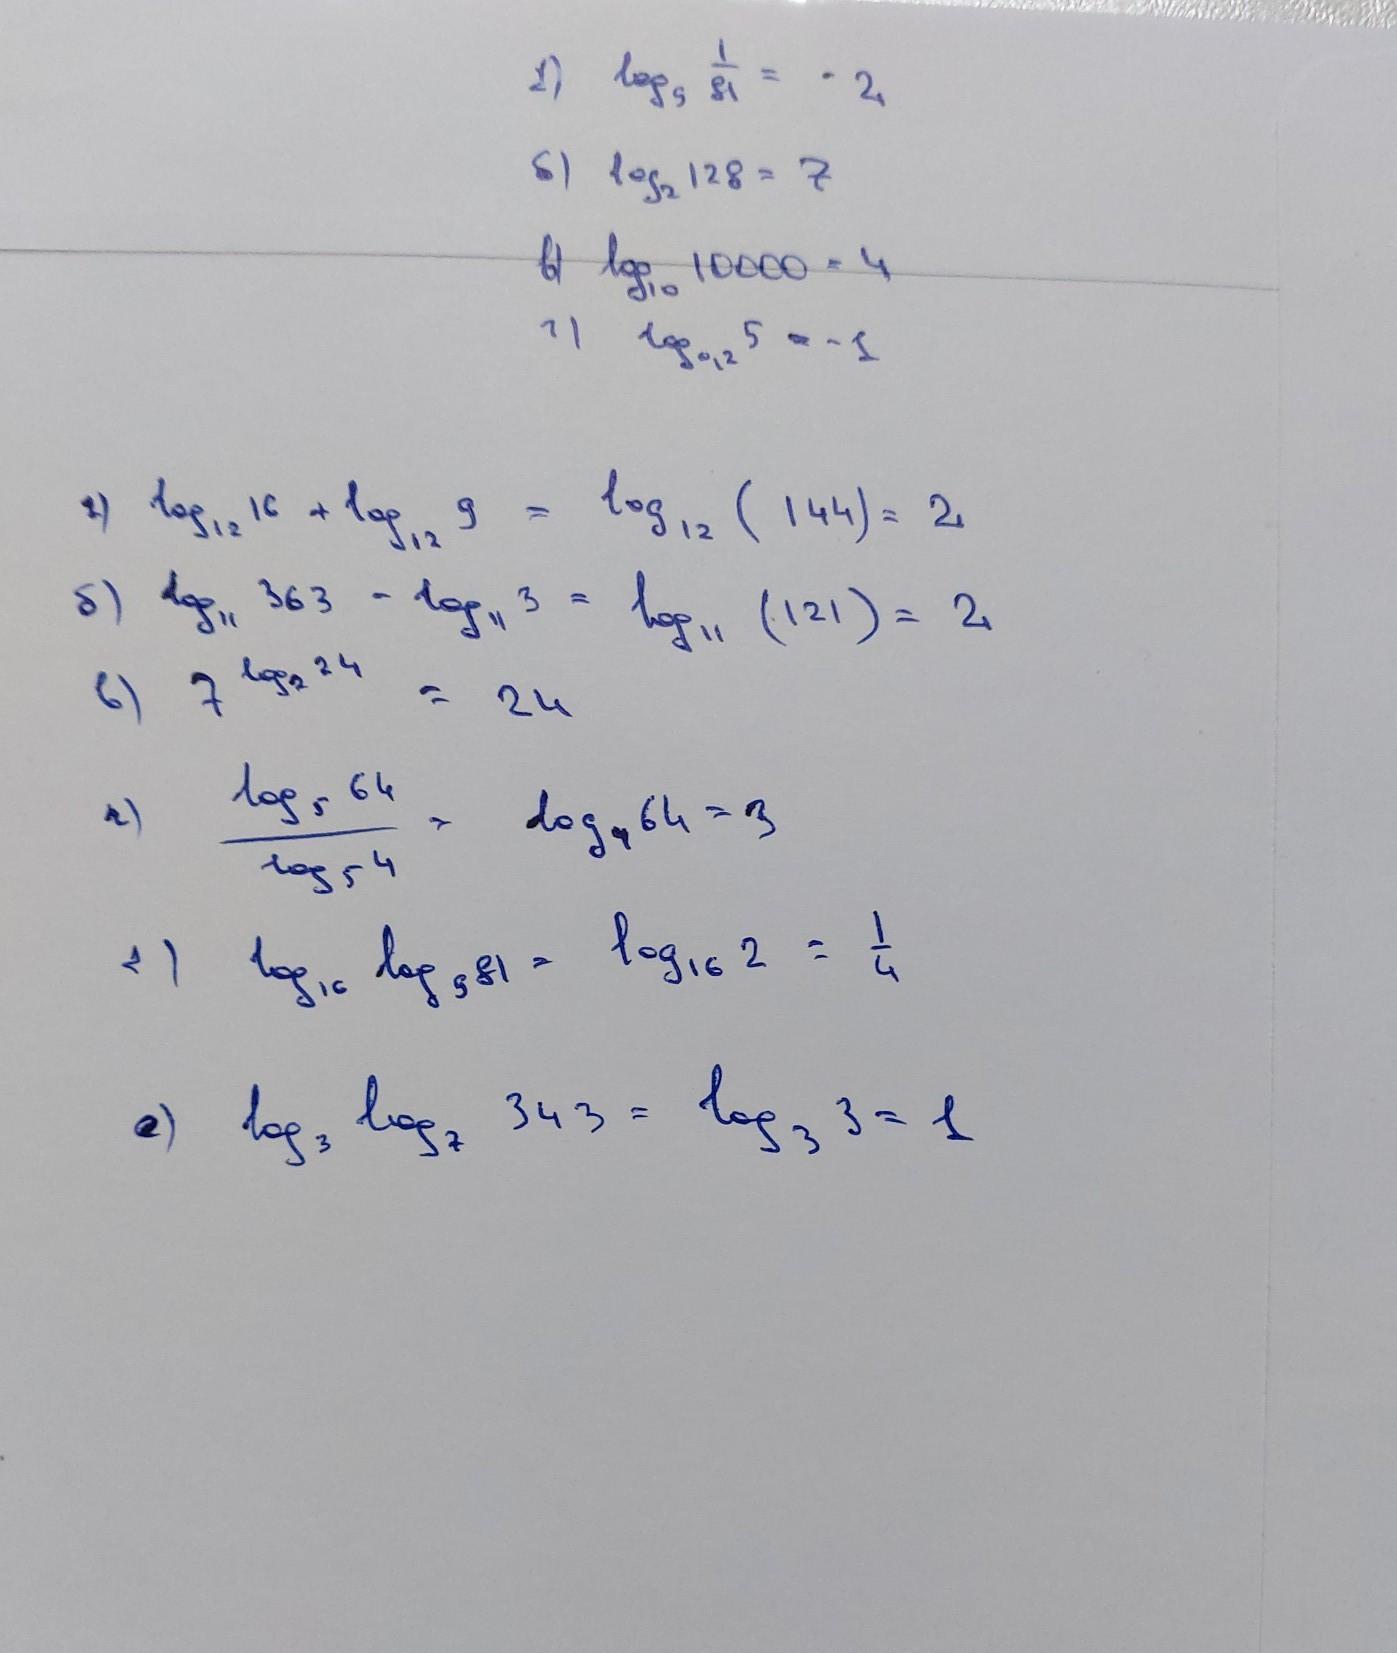 1) log₉ 1/81 = - 2
б) log₂ 128 = 7
в) log₁₀ 10000 = 4
г) log₀,₂ 5 = - 1
1) log₁₂ 16 + log₁₂ 9 = log₁₂ (144) = 2
б) log₁₁ 363 - log₁₁ 3 = log₁₁ (121) = 2
в) 7^log₇ 24 = 24
г) log₅ 64 / log₅ 4 = log₄ 64 = 3
1) log₁₆ log₉ 81 = log₁₆ 2 = 1/4
е) log₃ log₇ 343 = log₃ 3 = 1